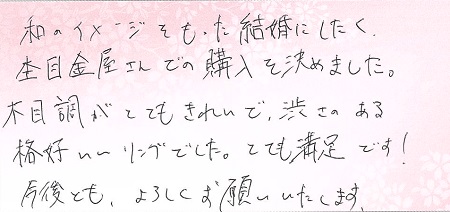 和のイメージをもった結婚にしたく、
杢目金屋さんでの購入を決めました。
木目調がとてもきれいで、渋さのある
格好いいリングでした。とても満足です！
今後とも、よろしくお願いいたします。